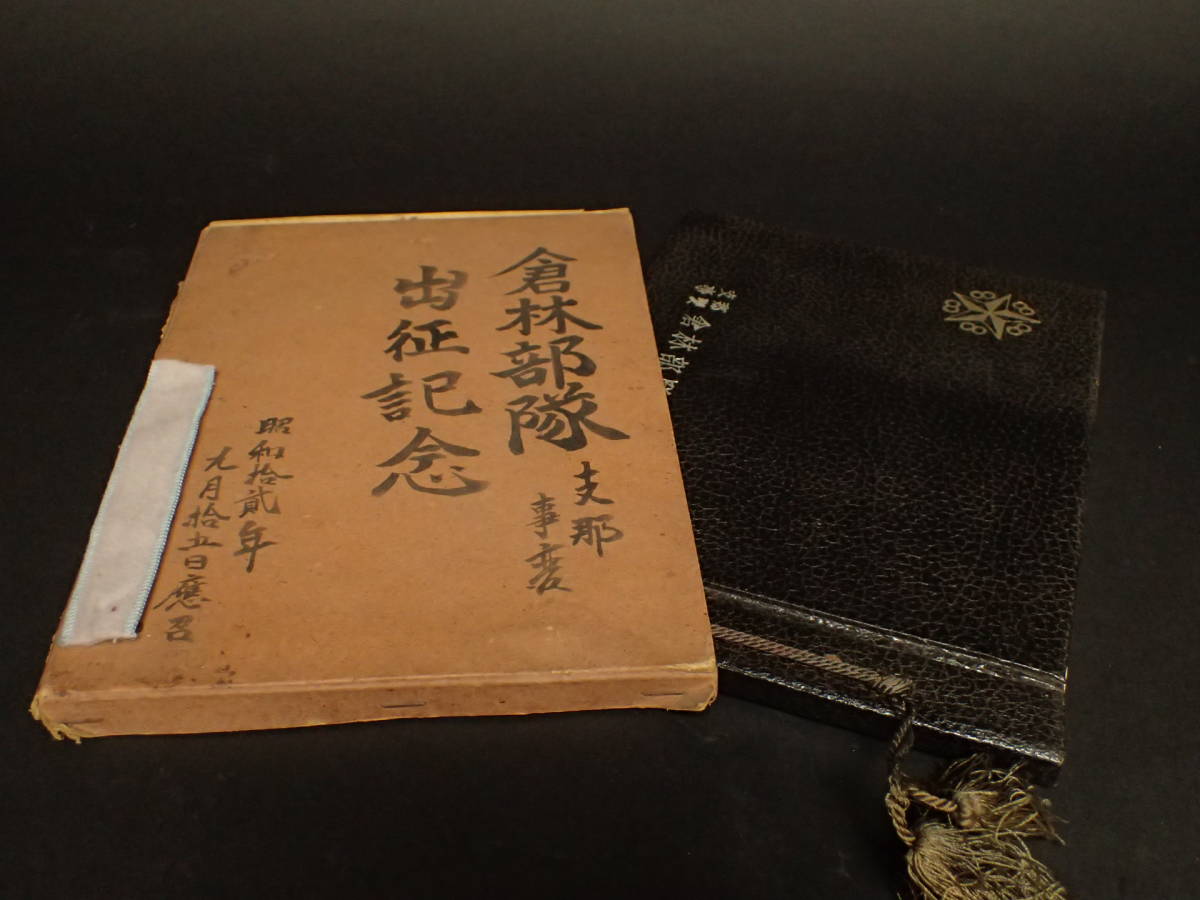 倉林部隊
支那
事変
出征記念
昭和拾貳年
九月拾五日應召
倉林部隊